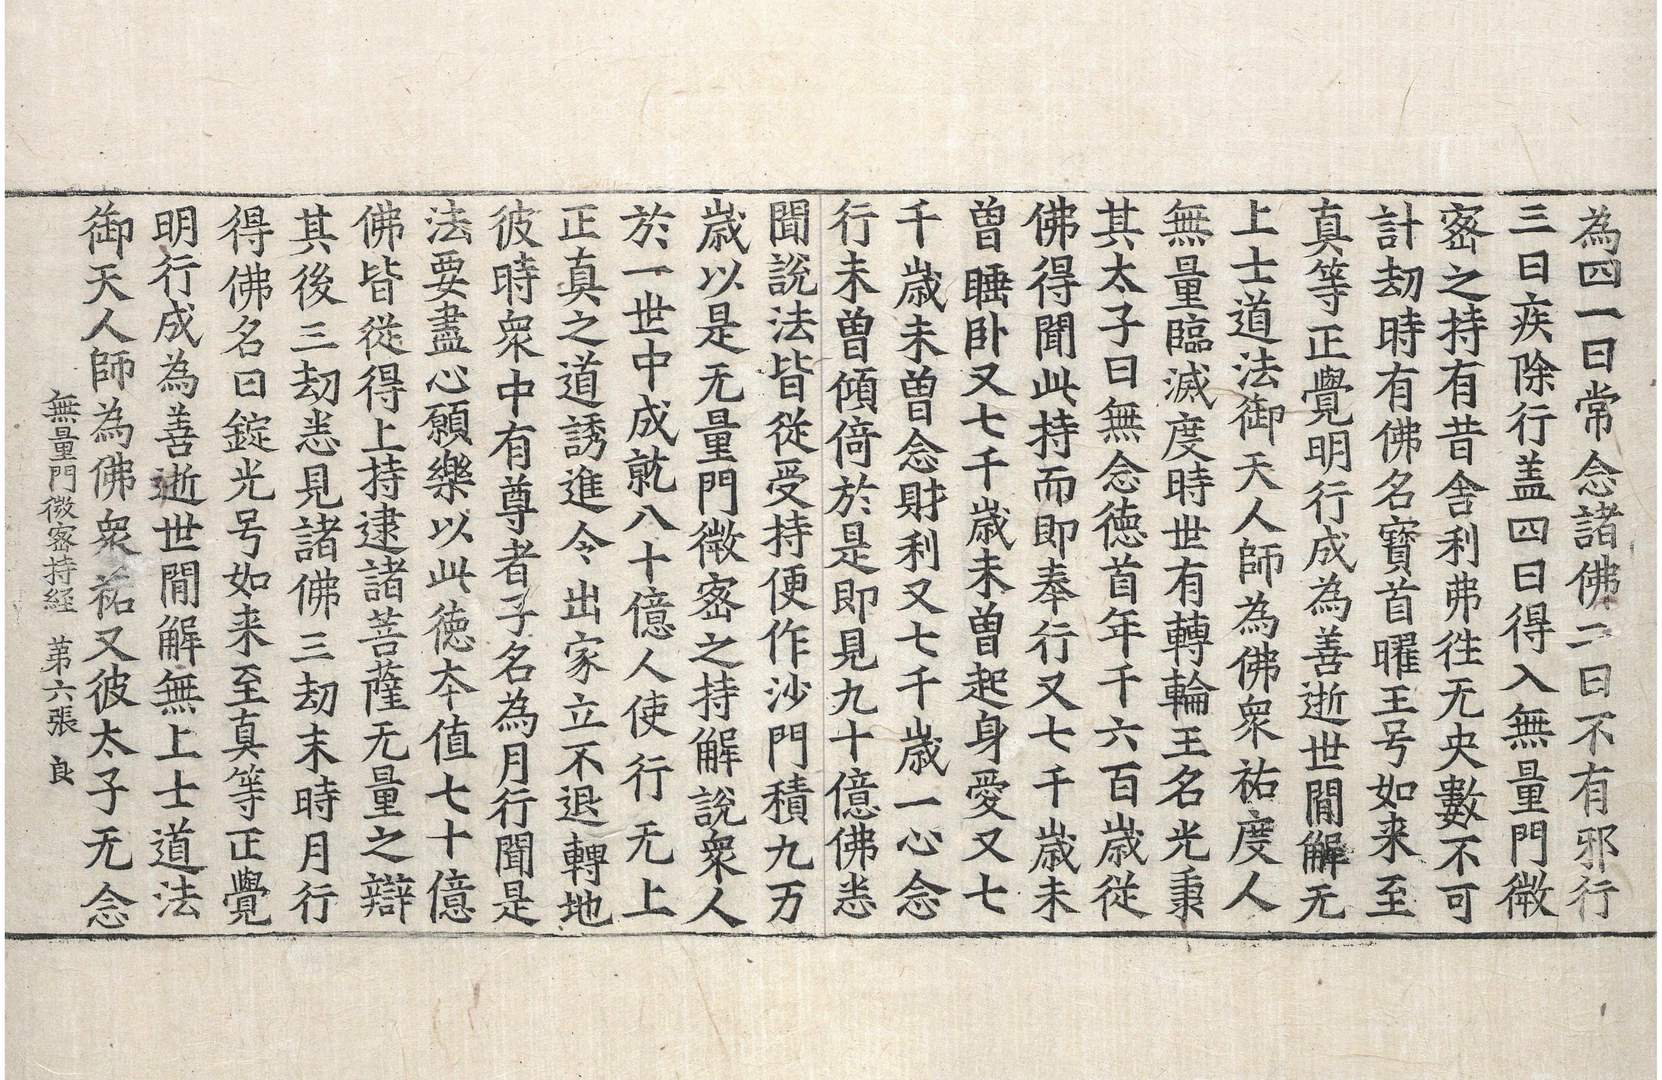 為四一曰常念諸佛二曰不有邪行
三曰疾除行盖四曰得入無量門微
宻之持有昔舍利弗徃无央數不可
計劫時有佛名寶首曜王号如来至
真等正覺明行成為善逝世間解无
上士道法御天人師為佛衆祐度人
無量臨滅度時世有轉輪王名光秉
其太子曰無念徳首年千六百歳從
佛得聞此持而即奉行又七千歳未
曽睡卧又七千歳未曽起身愛又七
千歳未曽念財利又七千歳一心念
行未曽傾倚於是即見九十億佛悉
聞說法皆從受持便作沙門積九万
歳以是无量門微宻之持解說衆人
於一世中成就八十億人使行无上
正真之道誘進令出家立不退轉地
彼時衆中有尊者子名為月行聞是
法要盡心願樂以此徳夲值七十億
佛皆從得上持逮諸菩薩无量之辯
其後三劫悉見諸佛三劫末時月行
得佛名曰錠光号如来至真等正覺
明行成為善逝世間解無上士道法
御天人師為佛衆祐又彼太子无念
無量門微宻持経 第六張 良